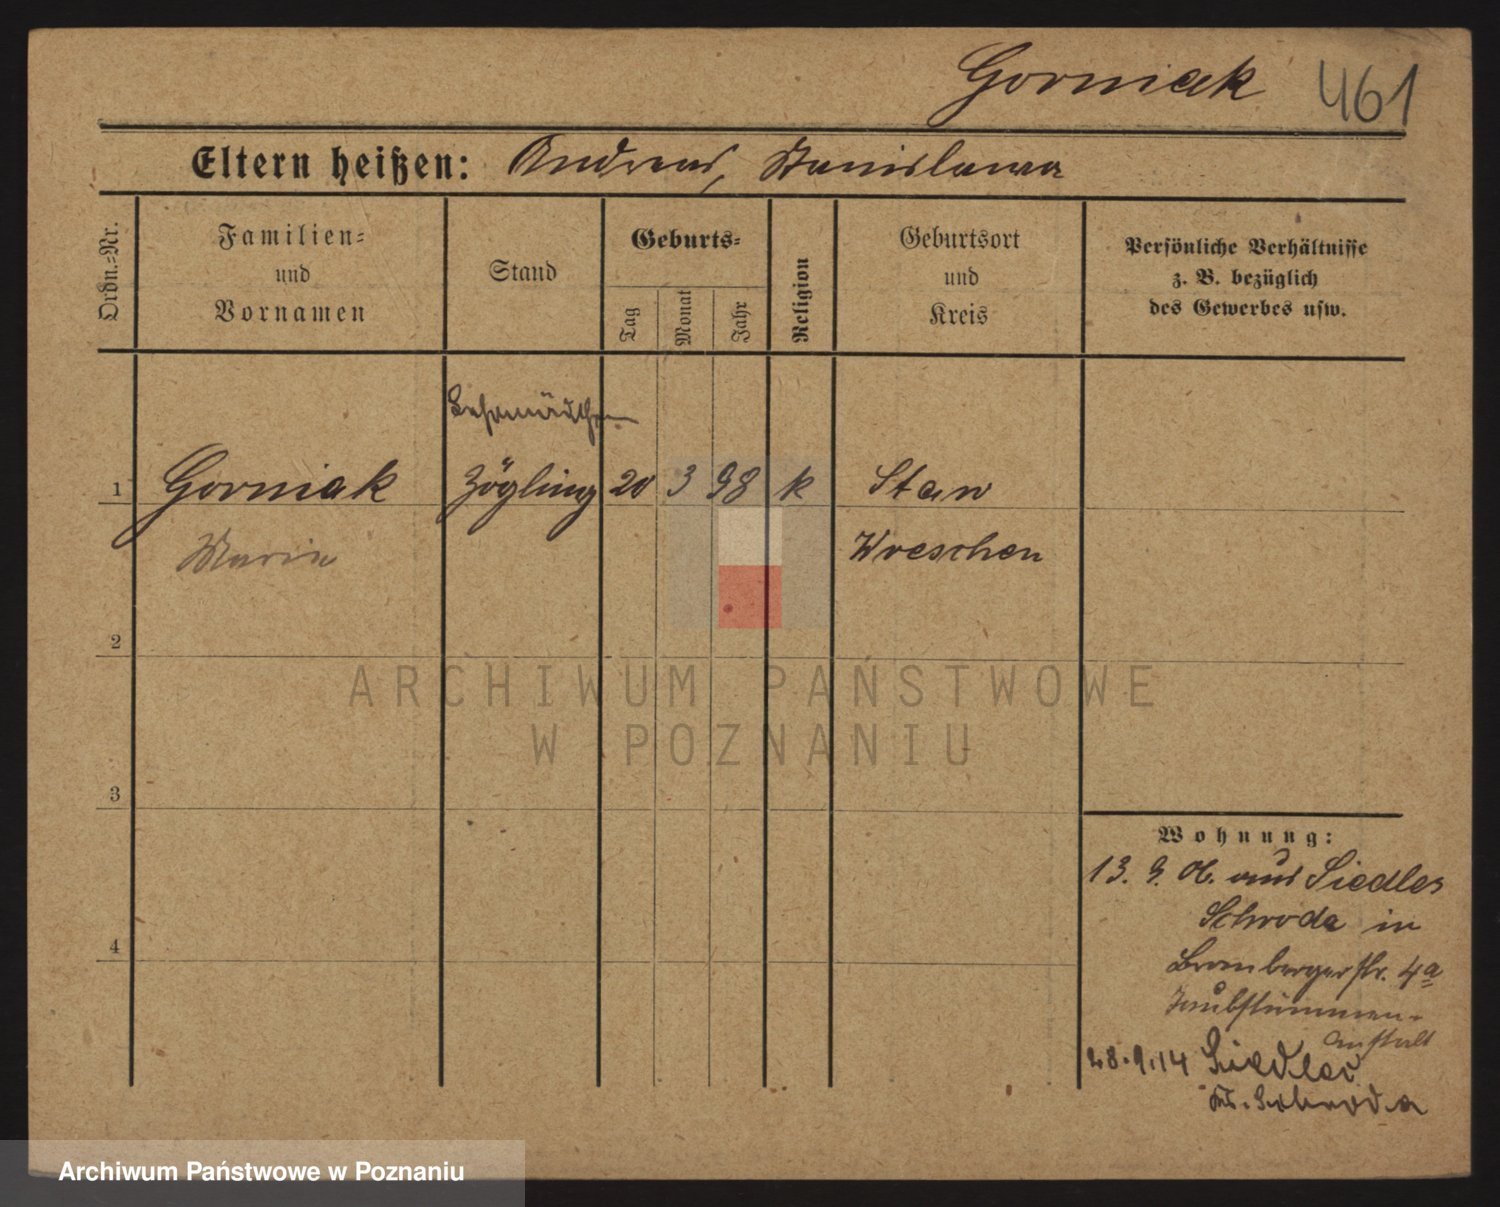 Gorniak 461
Eltern heißen: Andreas, Stanislawa
Ordn.-Nr.
Familien- und Vornamen
Stand
Geburts-
Tag
Monat
Jahr
Religion
Geburtsort und Kreis
Persönliche Verhältnisse
z. B. bezüglich
des Gewerbes usw.
Lehrmädchen
1 Gorniak Zögling 20 3 98 k Staw
Maria Wreschen
2
ARCHIWUM PAŃSTWOWE
W POZNANIU
3
Wohnung:
13. 9. 06. aus Siedlec
Schroda in
4
Brombergerstr. 4a
Taubstummen-
anstalt
28.9.14 Siedlec
Kr. Schroda
Archiwum Państwowe w Poznaniu